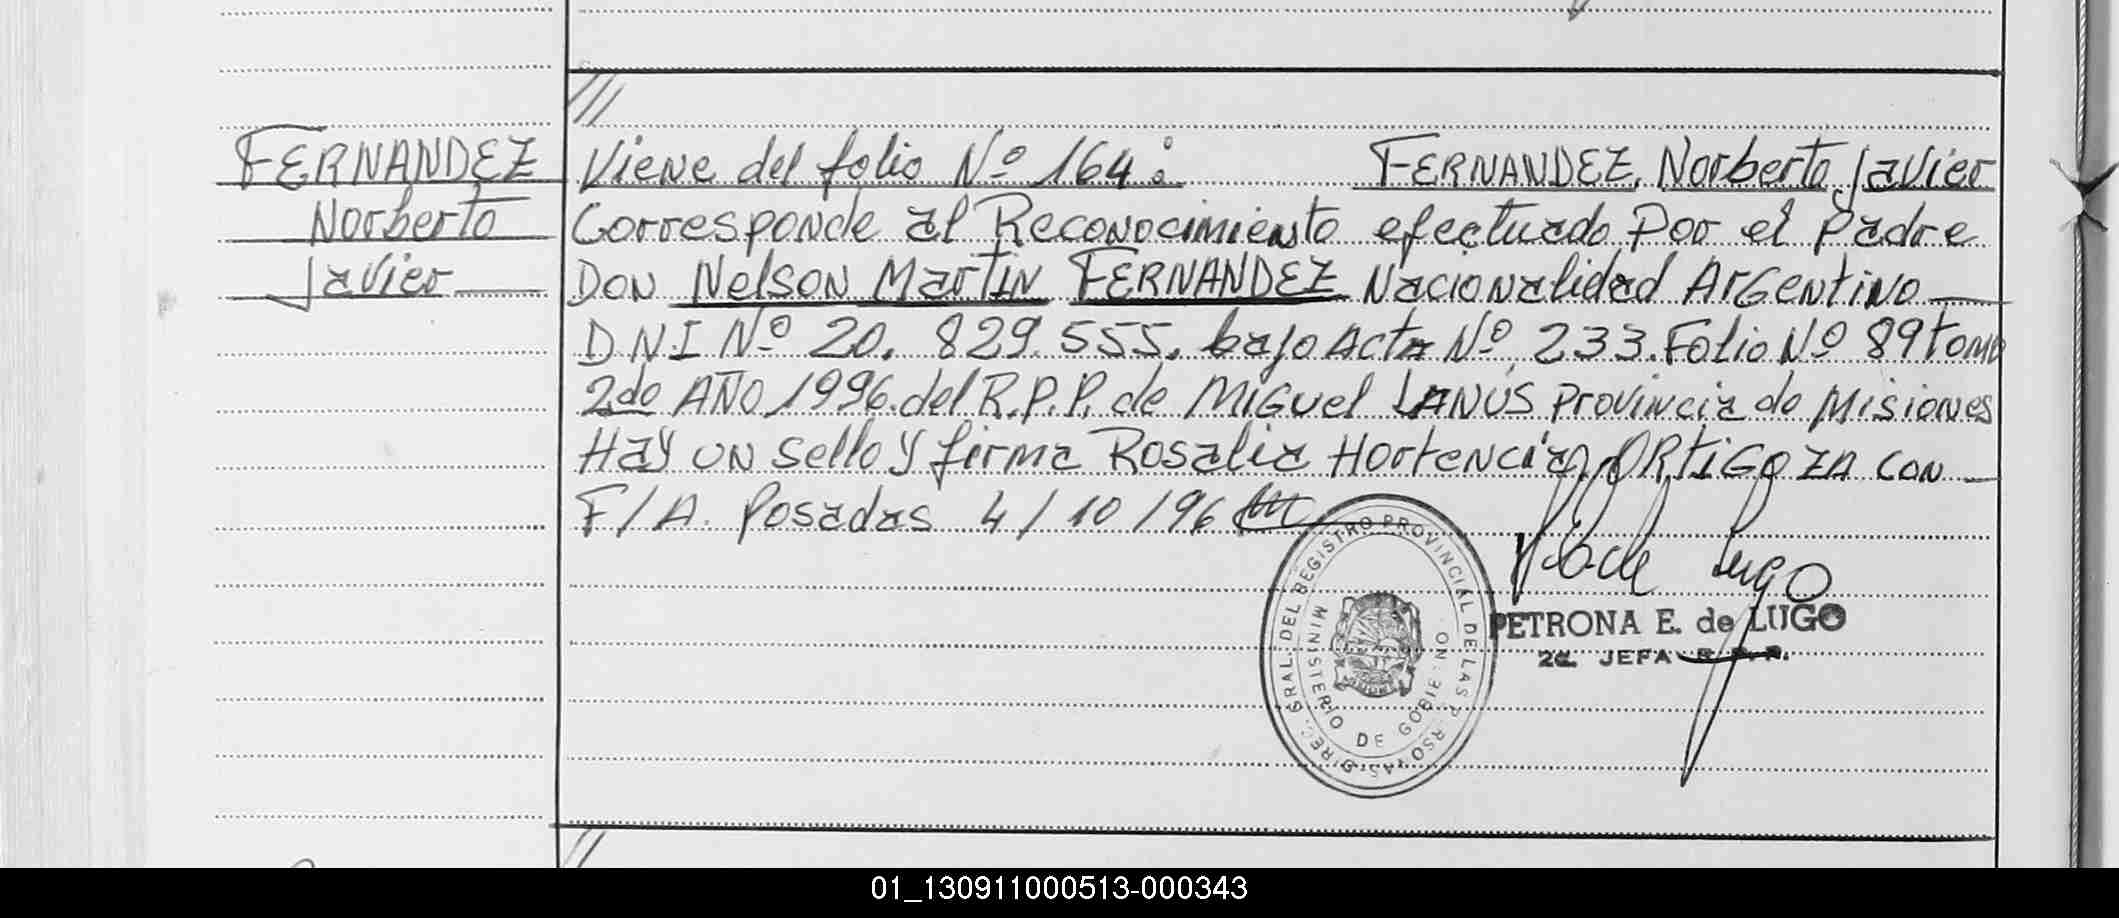 ///
FERNANDEZ
Norberto
Javier
Viene del folio Nº 164: FERNANDEZ, Norberto Javier
Corresponde al Reconocimiento efectuado Por el Padre
DON Nelson Martin FERNANDEZ Nacionalidad Argentino
D.N.I Nº 20.829.555. bajo Acta Nº 233. Folio Nº 89 tomo
2do AÑO 1996. del R.P.P. de Miguel LANÚS Provincia de Misiones
Hay un sello y firma Rosalia Hortencia ORTIGOZA con
F/A. Posadas 4/10/96
DIREC. GRAL. DEL REGISTRO PROVINCIAL DE LAS PERSONAS
MINISTERIO DE GOBIERNO
PETRONA E. de LUGO
2a. JEFA R.P.P.
//
01_130911000513-000343